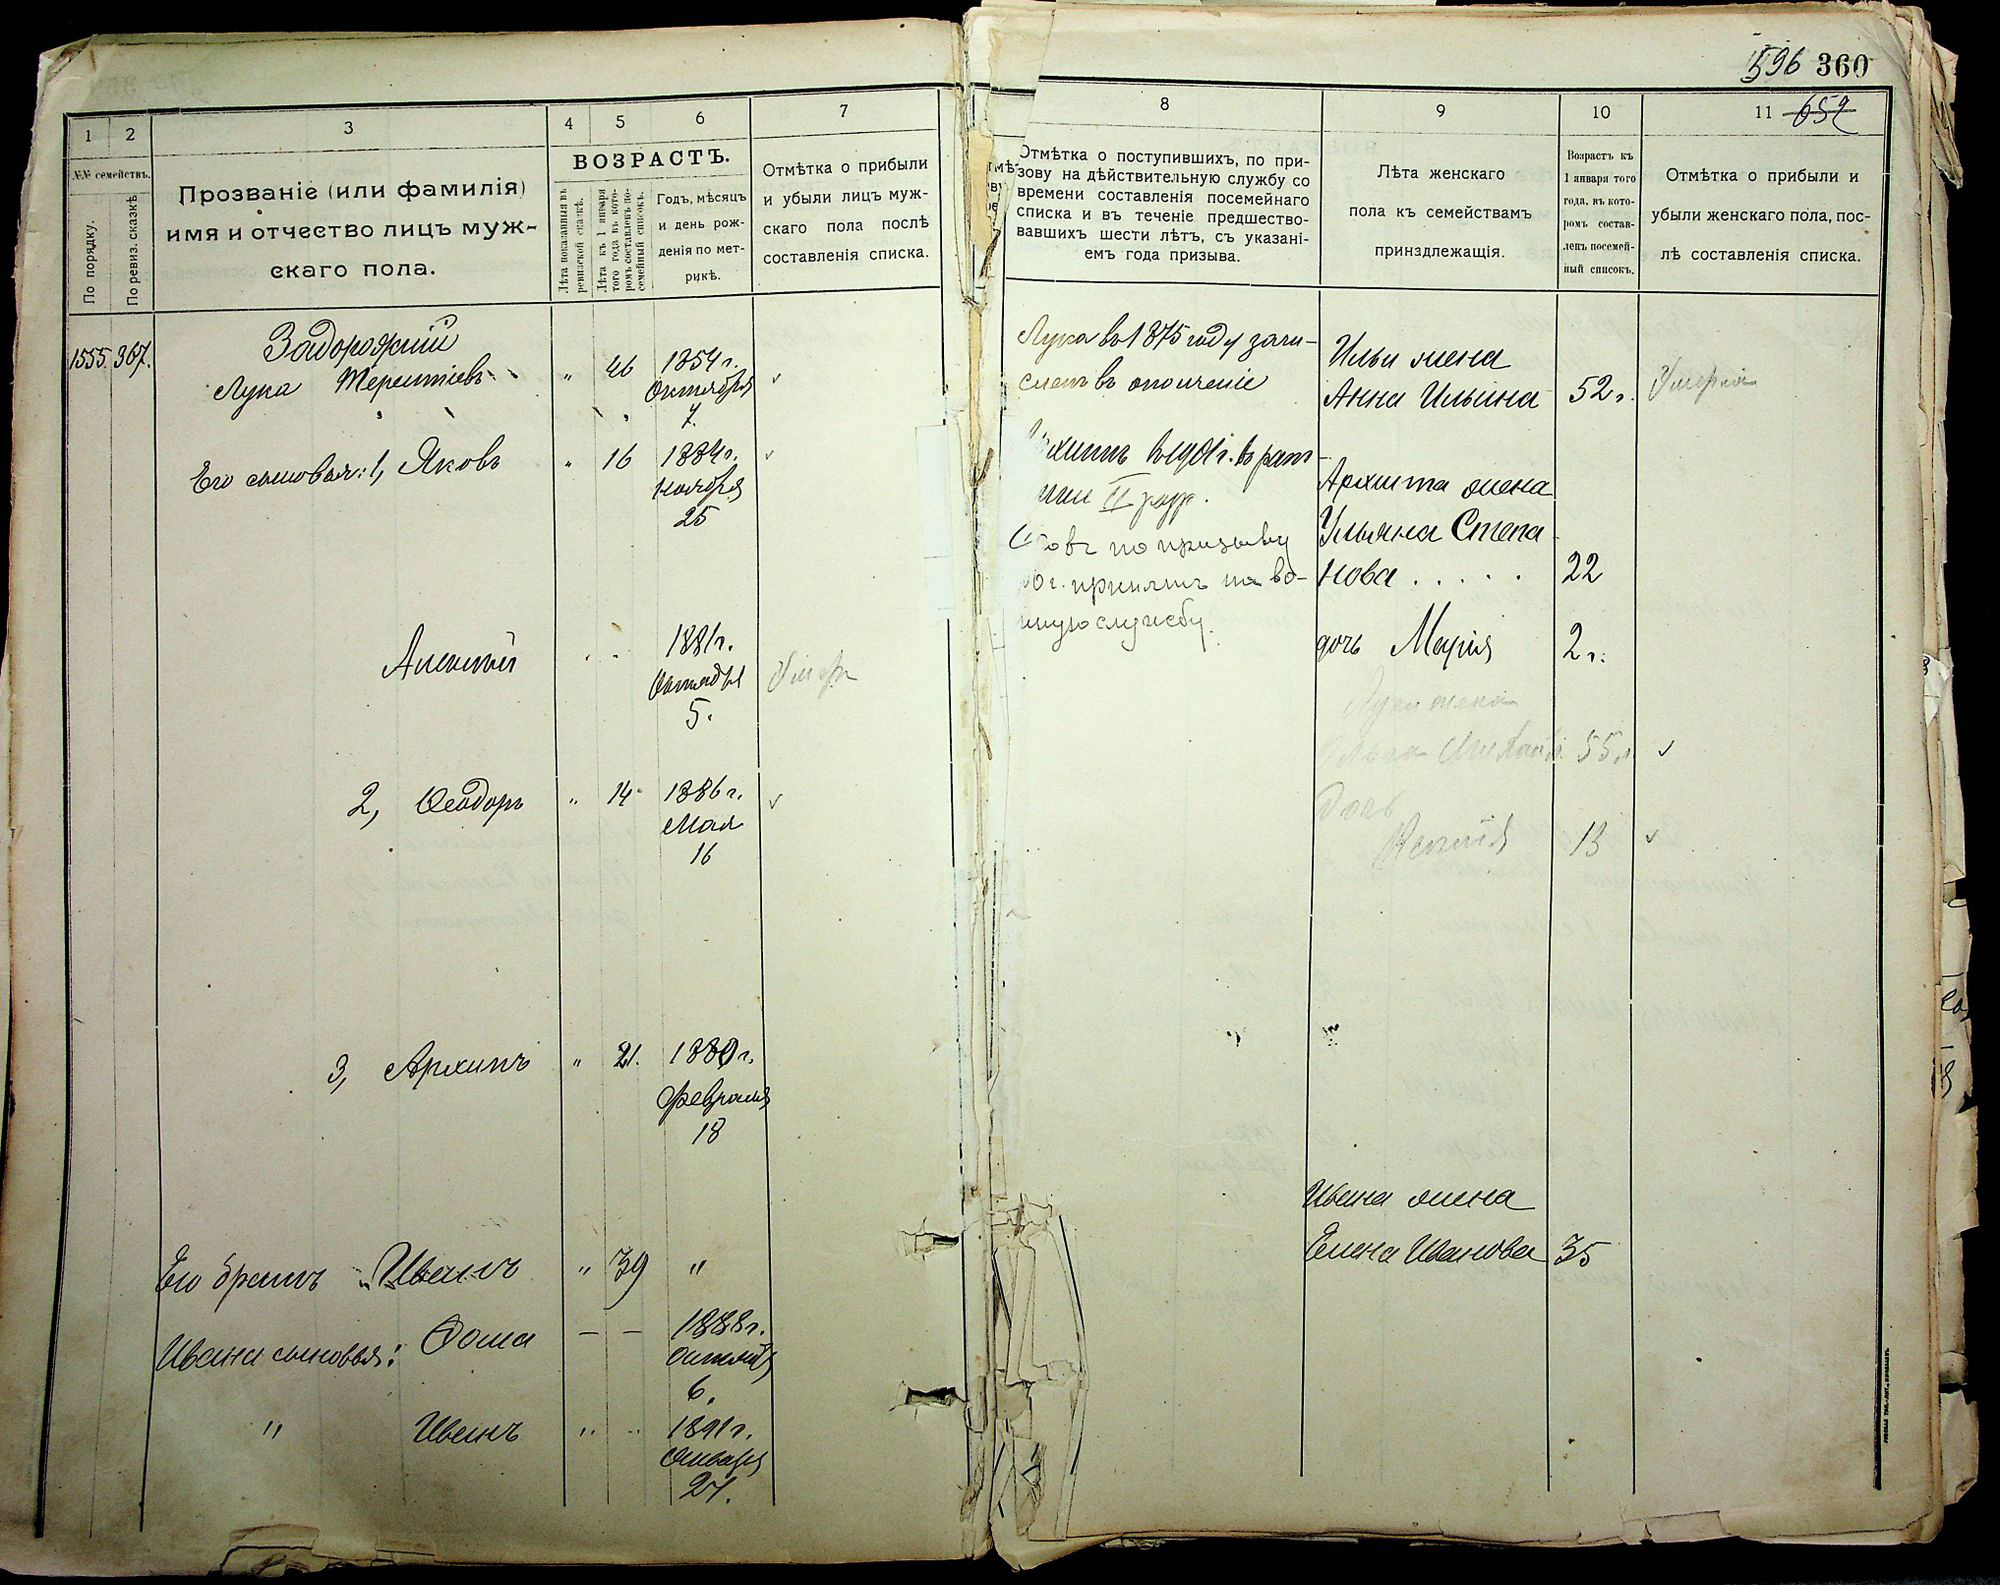 596 360
1 2 3 4 5 6 7
№№ семействъ.
По порядку.
По ревиз. сказкѣ
Прозваніе (или фамилія)
имя и отчество лицъ муж-
скаго пола.
ВОЗРАСТЪ.
Лѣта показанныя въ
ревизской сказкѣ.
Лѣта къ 1 января
того года въ кото-
ромъ составленъ по-
семейный списокъ.
Годъ, мѣсяцъ
и день рож-
денія по мет-
рикѣ.
Отмѣтка о прибыли
и убыли лицъ муж-
скаго пола послѣ
составленія списка.
1555. 367.
Задорожній
Лука Терентіевъ " 46 1854 г.
Октября
7.
Его сыновья: 1, Яковъ " 16 1884 г.
Ноября
25
Алексѣй 1881 г.
Октября
5.
Умеръ
2, Ѳеодоръ " 14 1886 г.
Мая
16
3, Архипъ " 21. 1880 г.
Февраля
18
Его братъ Иванъ " 39 "
Ивана сыновья: Ѳома — — 1888 г.
Октября
6.
" Иванъ " 1891 г.
Января
27.
8 9 10 11 652
Отмѣтка о поступившихъ, по при-
зову на дѣйствительную службу со
времени составленія посемейнаго
списка и въ теченіе предшество-
вавшихъ шести лѣтъ, съ указані-
емъ года призыва.
Лѣта женскаго
пола къ семействамъ
принздлежащія.
Возрастъ къ
1 января того
года, въ кото-
ромъ состав-
ленъ посемей-
ный списокъ.
Отмѣтка о прибыли и
убыли женскаго пола, пос-
лѣ составленія списка.
Лука въ 1875 году зачи-
сленъ въ ополченіе
хипъ въ 1901 г. въ рат-
ники II разр.
овъ по призыву
г. принятъ на во-
нную службу.
Ильи жена
Анна Ильина 52 г. Умерла
Архипа жена
Ульяна Степа-
нова . . . . . 22
дочь Марія 2 г.
Луки жена
55 л.
Дочь
Ксенія 13
Ивана жена
Елена Иванова 35